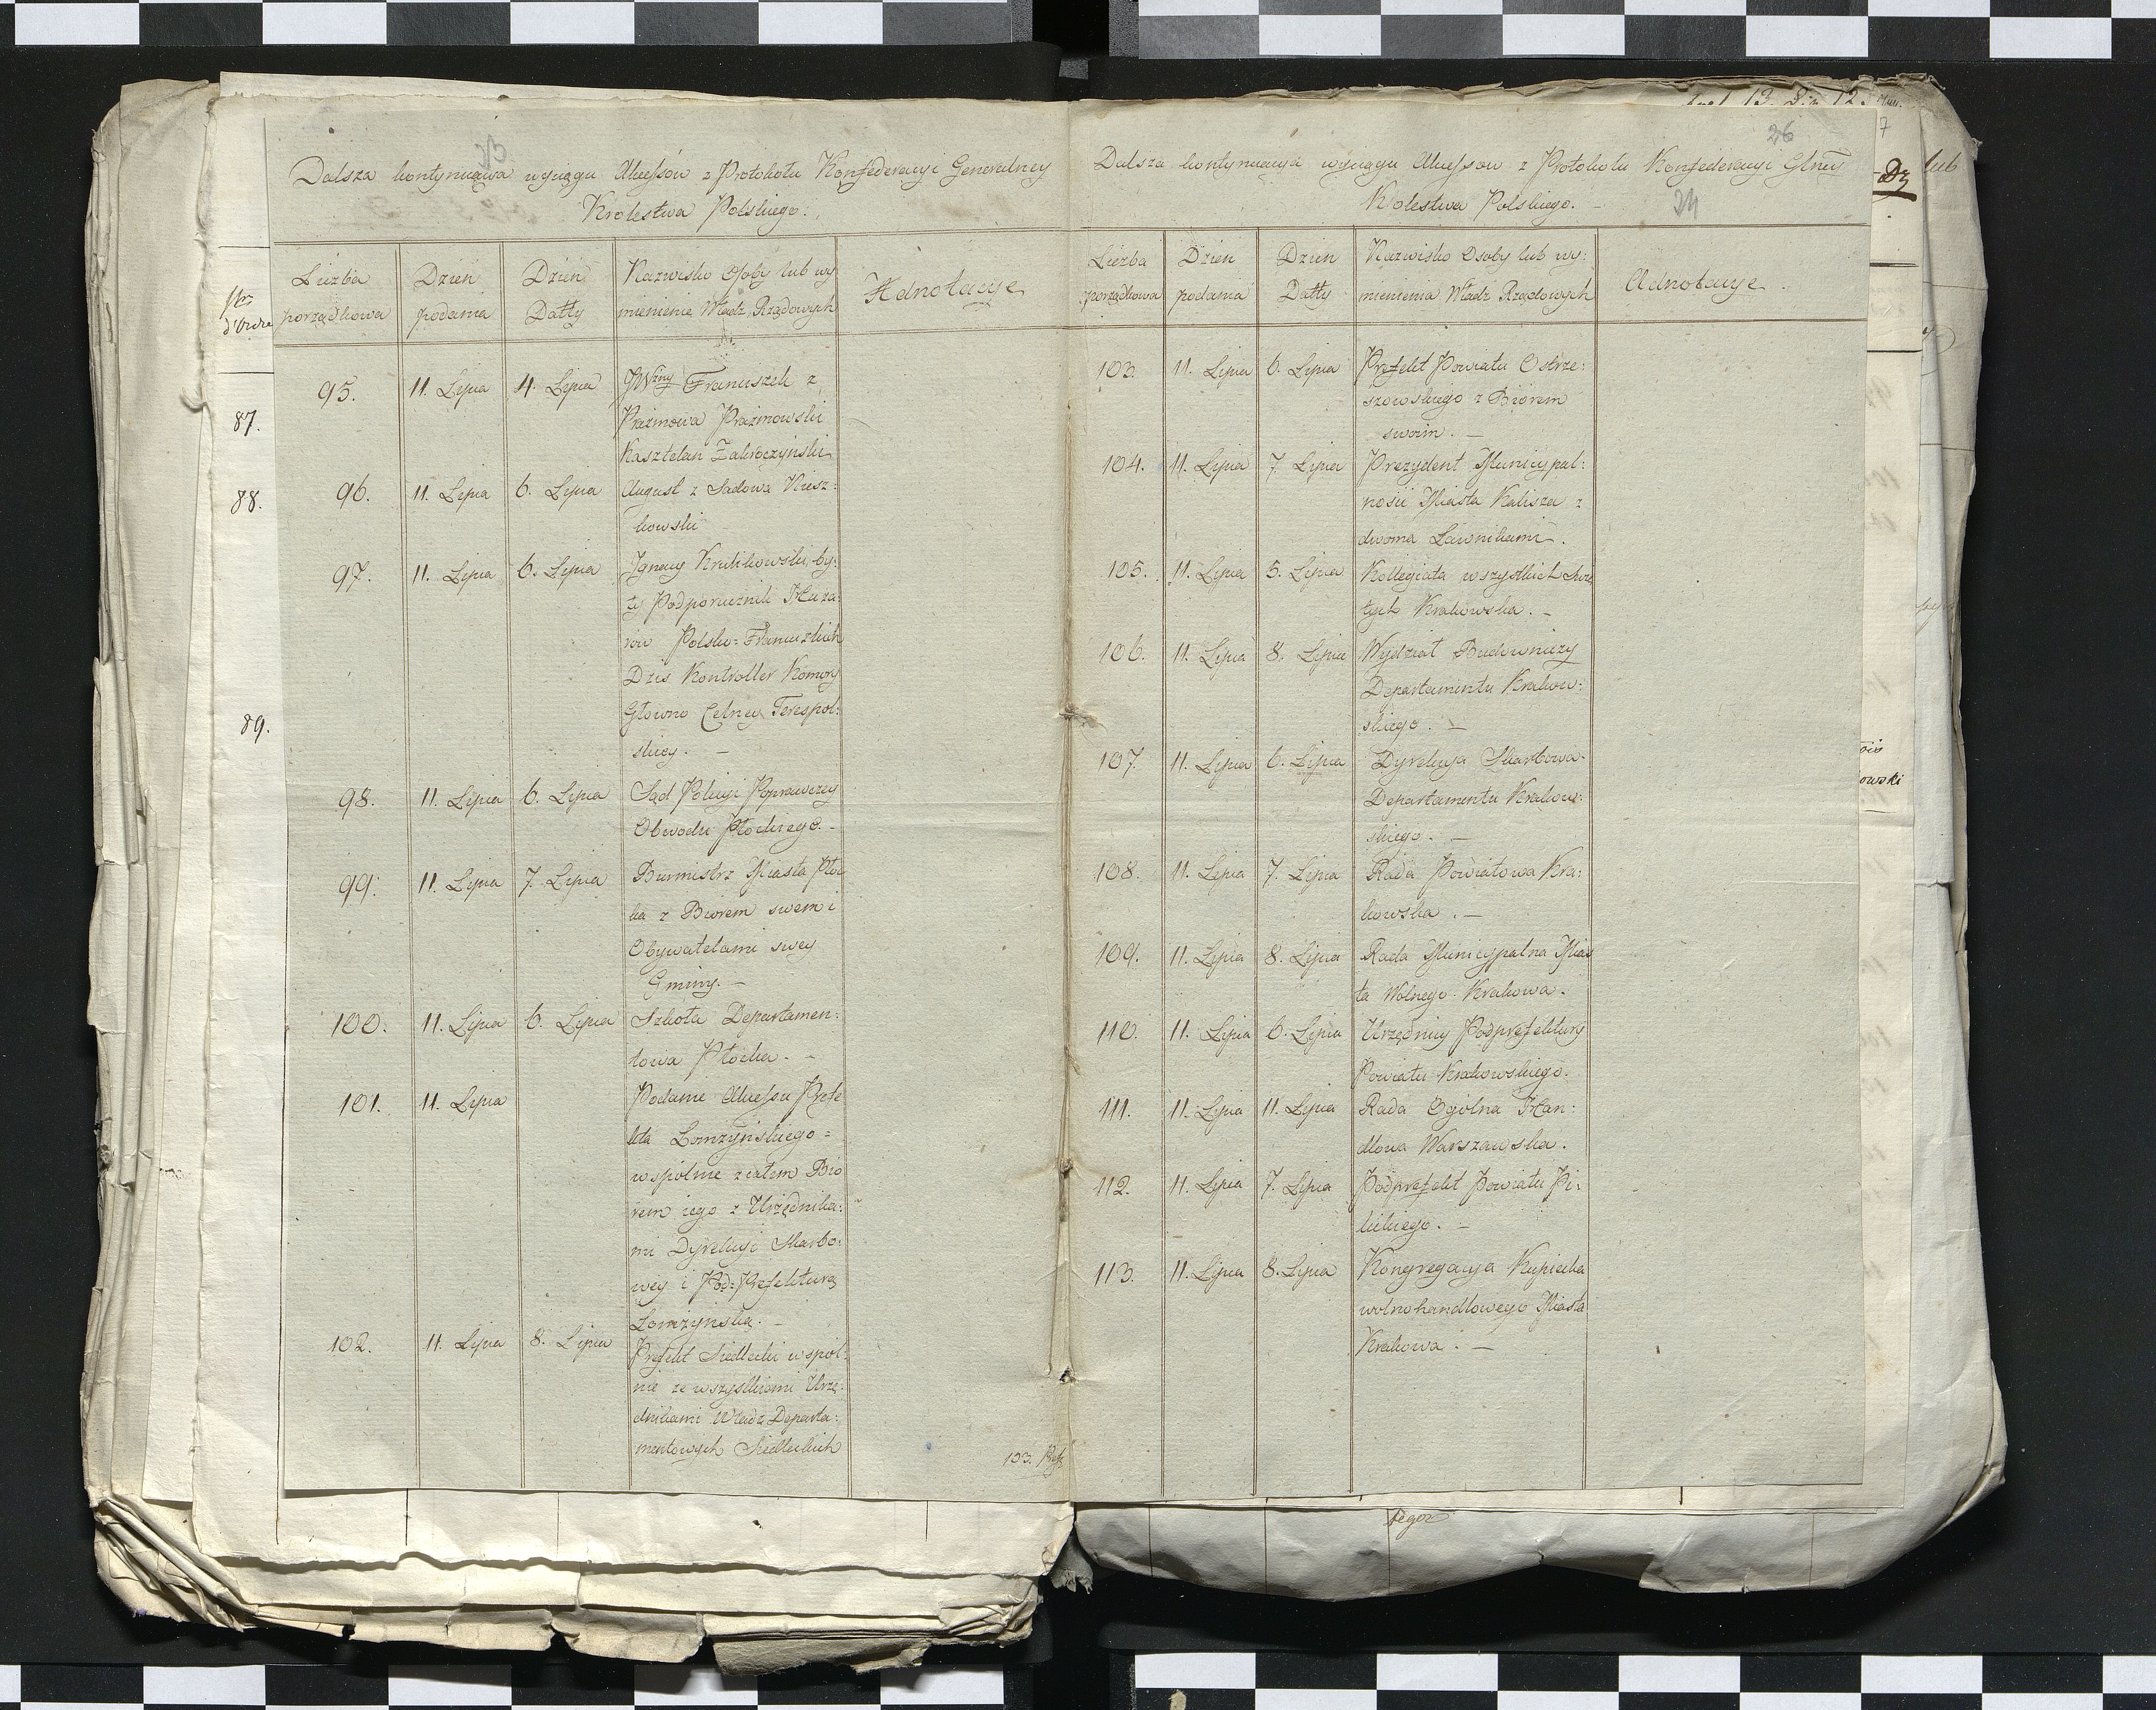 Dalsza kontynuacya wyciągu Akcessów z Protokołu Konfederacyi Generalney
Krolestwa Polskiego.
Liczba porządkowa
Dzień podania
Dzień Datty
Nazwisko Osoby lub wy
mienienie Władz Rządowych
Adnotacye
95. 11. Lipca 4. Lipca JWżny Franciszek z
Prażmowa Prażmowski
Kasztelan Zakroczyński
96. 11. Lipca 6. Lipca August z Sadowa Kicsz:
kowski
97. 11. Lipca 6. Lipca Ignacy Krulikowski, by:
ły Podporucznik Huza:
rów Polsko=Francuzkich
Dziś Kontroller Komory
Głowno Celney Terespol:
skiey. —
98. 11. Lipca 6. Lipca Sąd Policyi Poprawczey
Obwodu Płockiego. –
99. 11. Lipca 7. Lipca Burmistrz Miasta Płoc
ka z Biórem swem i
Obywatelami swey
Gminy. —
100. 11. Lipca 6. Lipca Szkoła Departamen:
towa Płocka. –
101. 11. Lipca Podanie Akcessu Prefe
kta Łomżyńskiego =
wspólnie z całem Bió
rem iego z Urzędnika:
mi Dyrekcyi Skarbo:
wey i Pod=Prefekturą
Łomżyńską. –
102. 11. Lipca 8. Lipca Prefekt Siedlecki wspól:
nie ze wszystkiemi Urzę:
dnikami Władz Departa:
mentowych Siedleckich
103. Pref
Nro
d'Ordre
87.
88.
89.
26
Dalsza kontynuacya wyciągu Akcessow z Protokołu Konfederacyi Glney
Krolestwa Polskiego. –
24
Liczba porządkowa
Dzień podania
Dzień Datty
Nazwisko Osoby lub wy:
mienienia Władz Rządowych
Adnotacye.
103. 11. Lipca 6. Lipca Prefekt Powiatu Ostrze:
szowskiego z Biórem
swoim. —
104. 11. Lipca 7. Lipca Prezydent Municypal:
ności Miasta Kalisza z
dwoma Ławnikami.
105. 11. Lipca 5. Lipca Kollegiata wszystkich Świę
tych Krakowska. –
106. 11. Lipca 8. Lipca Wydział Budowniczy
Departamentu Krakow:
skiego. —
107. 11. Lipca 6. Lipca Dyrekcya Skarbowa
Departamentu Krakow:
skiego. —
108. 11. Lipca 7. Lipca Rada Powiatowa Kra:
kowska. —
109. 11. Lipca 8. Lipca Rada Municypalna Mias
ta Wolnego Krakowa.
110. 11. Lipca 6. Lipca Urzędnicy Podprefektury
Powiatu Krakowskiego.
111. 11. Lipca 11. Lipca Rada Ogólna Han:
dlowa Warszawska.
112. 11. Lipca 7. Lipca Podprefekt Powiatu Pi:
lickiego. –
113. 11. Lipca 8. Lipca Kongregacya Kupiecka
wolnohandlowego Miasta
Krakowa. —
lub
owski